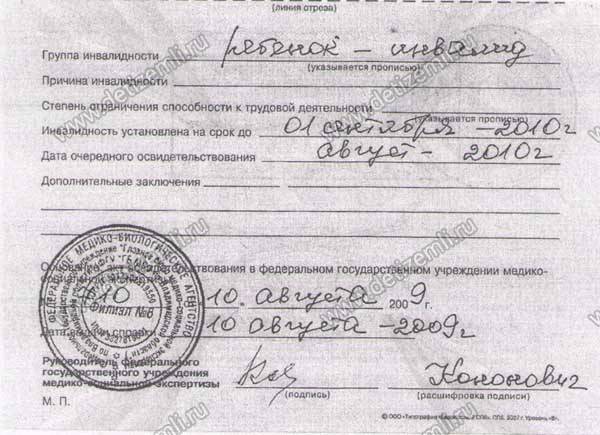 (линия отреза)
Группа инвалидности ребенок - инвалид
(указывается прописью)
Причина инвалидности
Степень ограничения способности к трудовой деятельности
(указывается прописью)
Инвалидность установлена на срок до 01 сентября - 2010г
Дата очередного освидетельствования август - 2010г
Дополнительные заключения
Основание: акт освидетельствования в федеральном государственном учреждении медико-
социальной экспертизы
10. августа 2009г.
Дата выдачи справки 10 августа - 2009г
Руководитель федерального
государственного учреждения
медико-социальной экспертизы
Кононович
(подпись) (расшифровка подписи)
М. П.
ФЕДЕРАЛЬНОЕ МЕДИКО-БИОЛОГИЧЕСКОЕ АГЕНТСТВО
Филиал №8
www.detizemli.ru